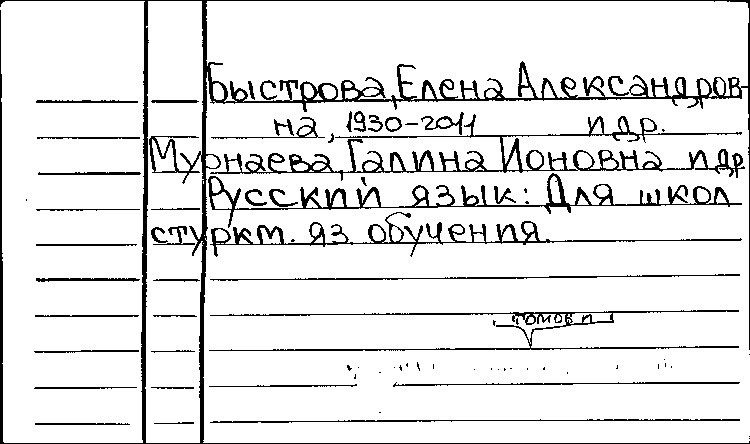 Быстрова, Елена Александров-
на, 1930-2011 п др.
Мурнаева, Галина Ионовна п др
Русский язык: Для школ
с туркм. яз. обучения.
томов п